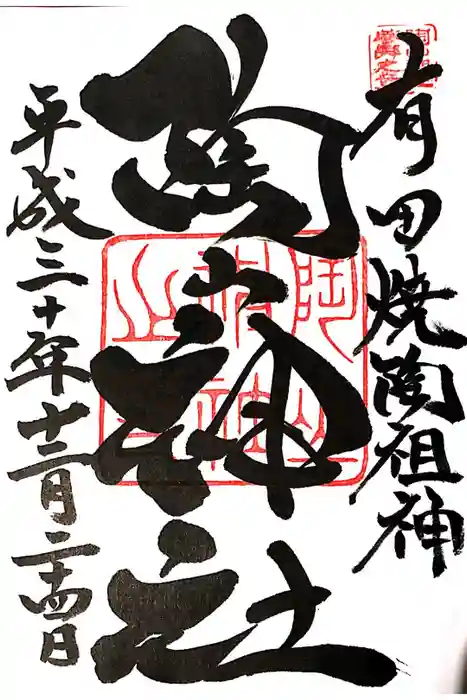 有田焼陶祖神
陶山神社
平成三十年十二月二十四日